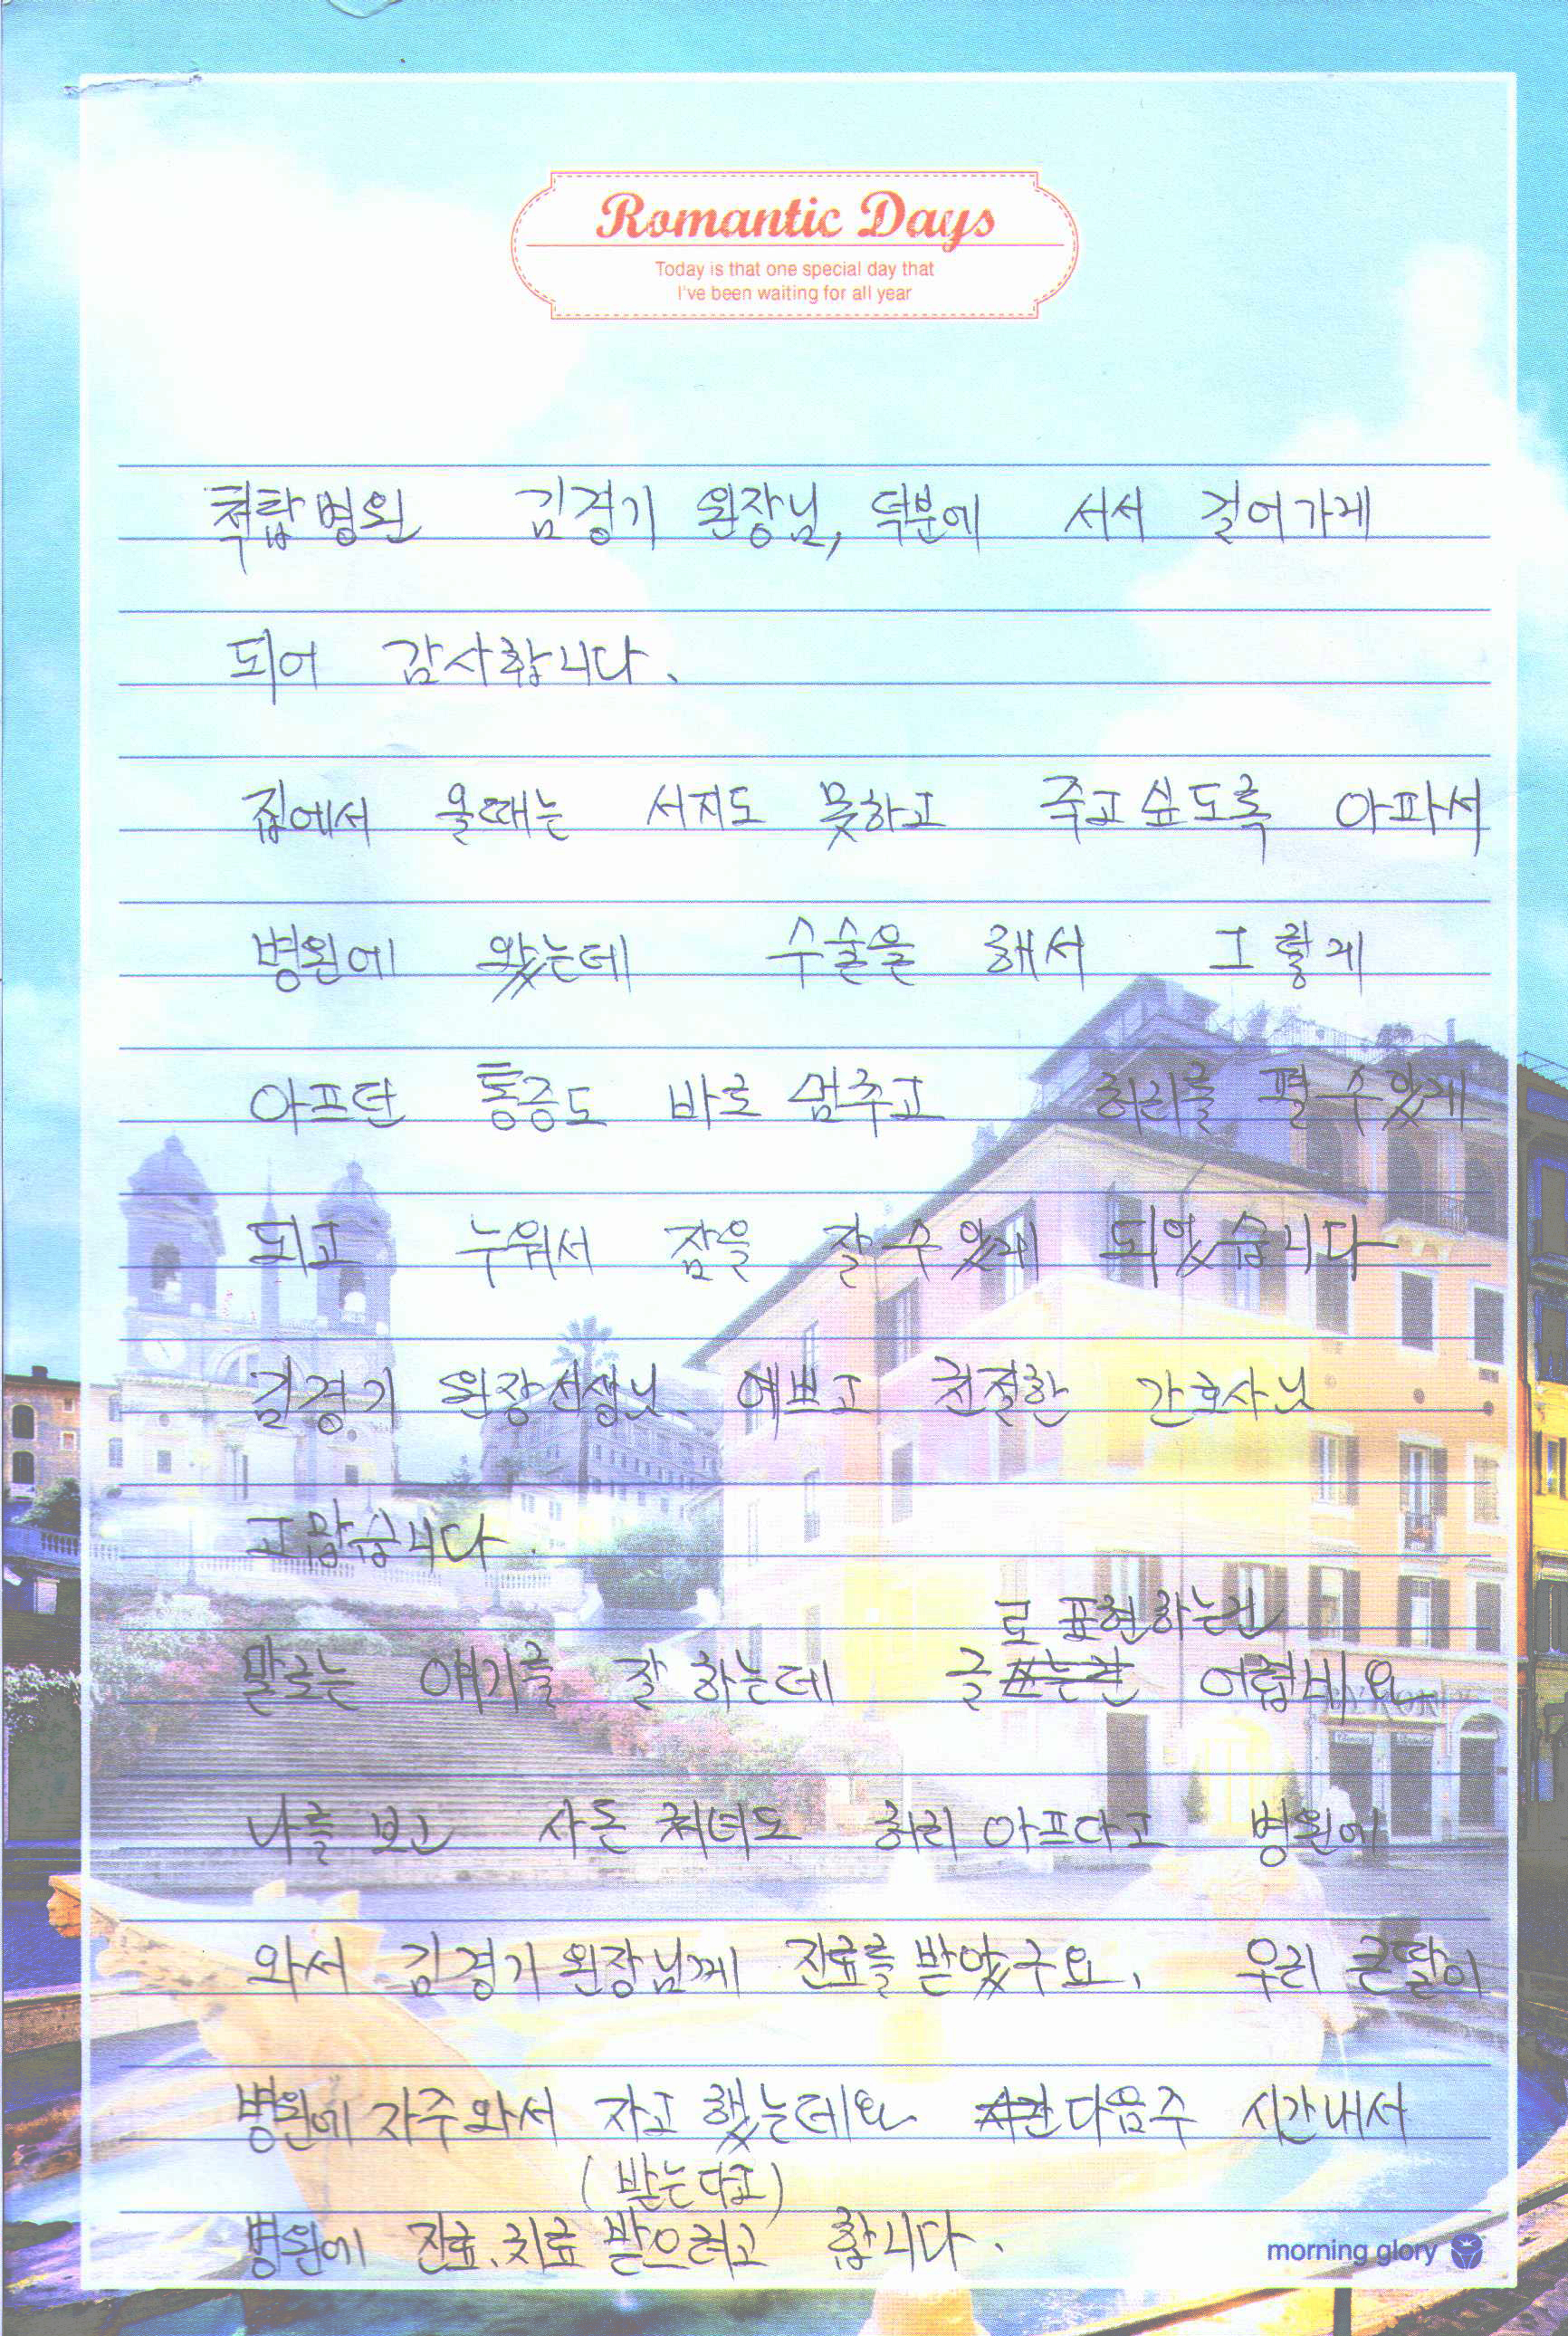 Romantic Days
Today is that one special day that
I've been waiting for all year
척탑병원 김경기 원장님, 덕분에 서서 걸어가게
되어 감사합니다.
집에서 올때는 서지도 못하고 죽고싶도록 아파서
병원에 왔는데 수술을 해서 그렇게
아프던 통증도 바로 멈추고 허리를 펼수있게
되고 누워서 잠을 잘수있게 되었습니다
김경기 원장선생님, 예쁘고 친절한 간호사님
고맙습니다.
로 표현하는건
말로는 얘기를 잘 하는데 글 어렵네요
나를 보고 사돈 처녀도 허리 아프다고 병원에
와서 김경기 원장님께 진료를 받았구요. 우리 큰딸이
병원에 자주와서 자고 했는데요 다음주 시간내서
(받는다고)
병원에 진료, 치료 받으려고 합니다.
morning glory